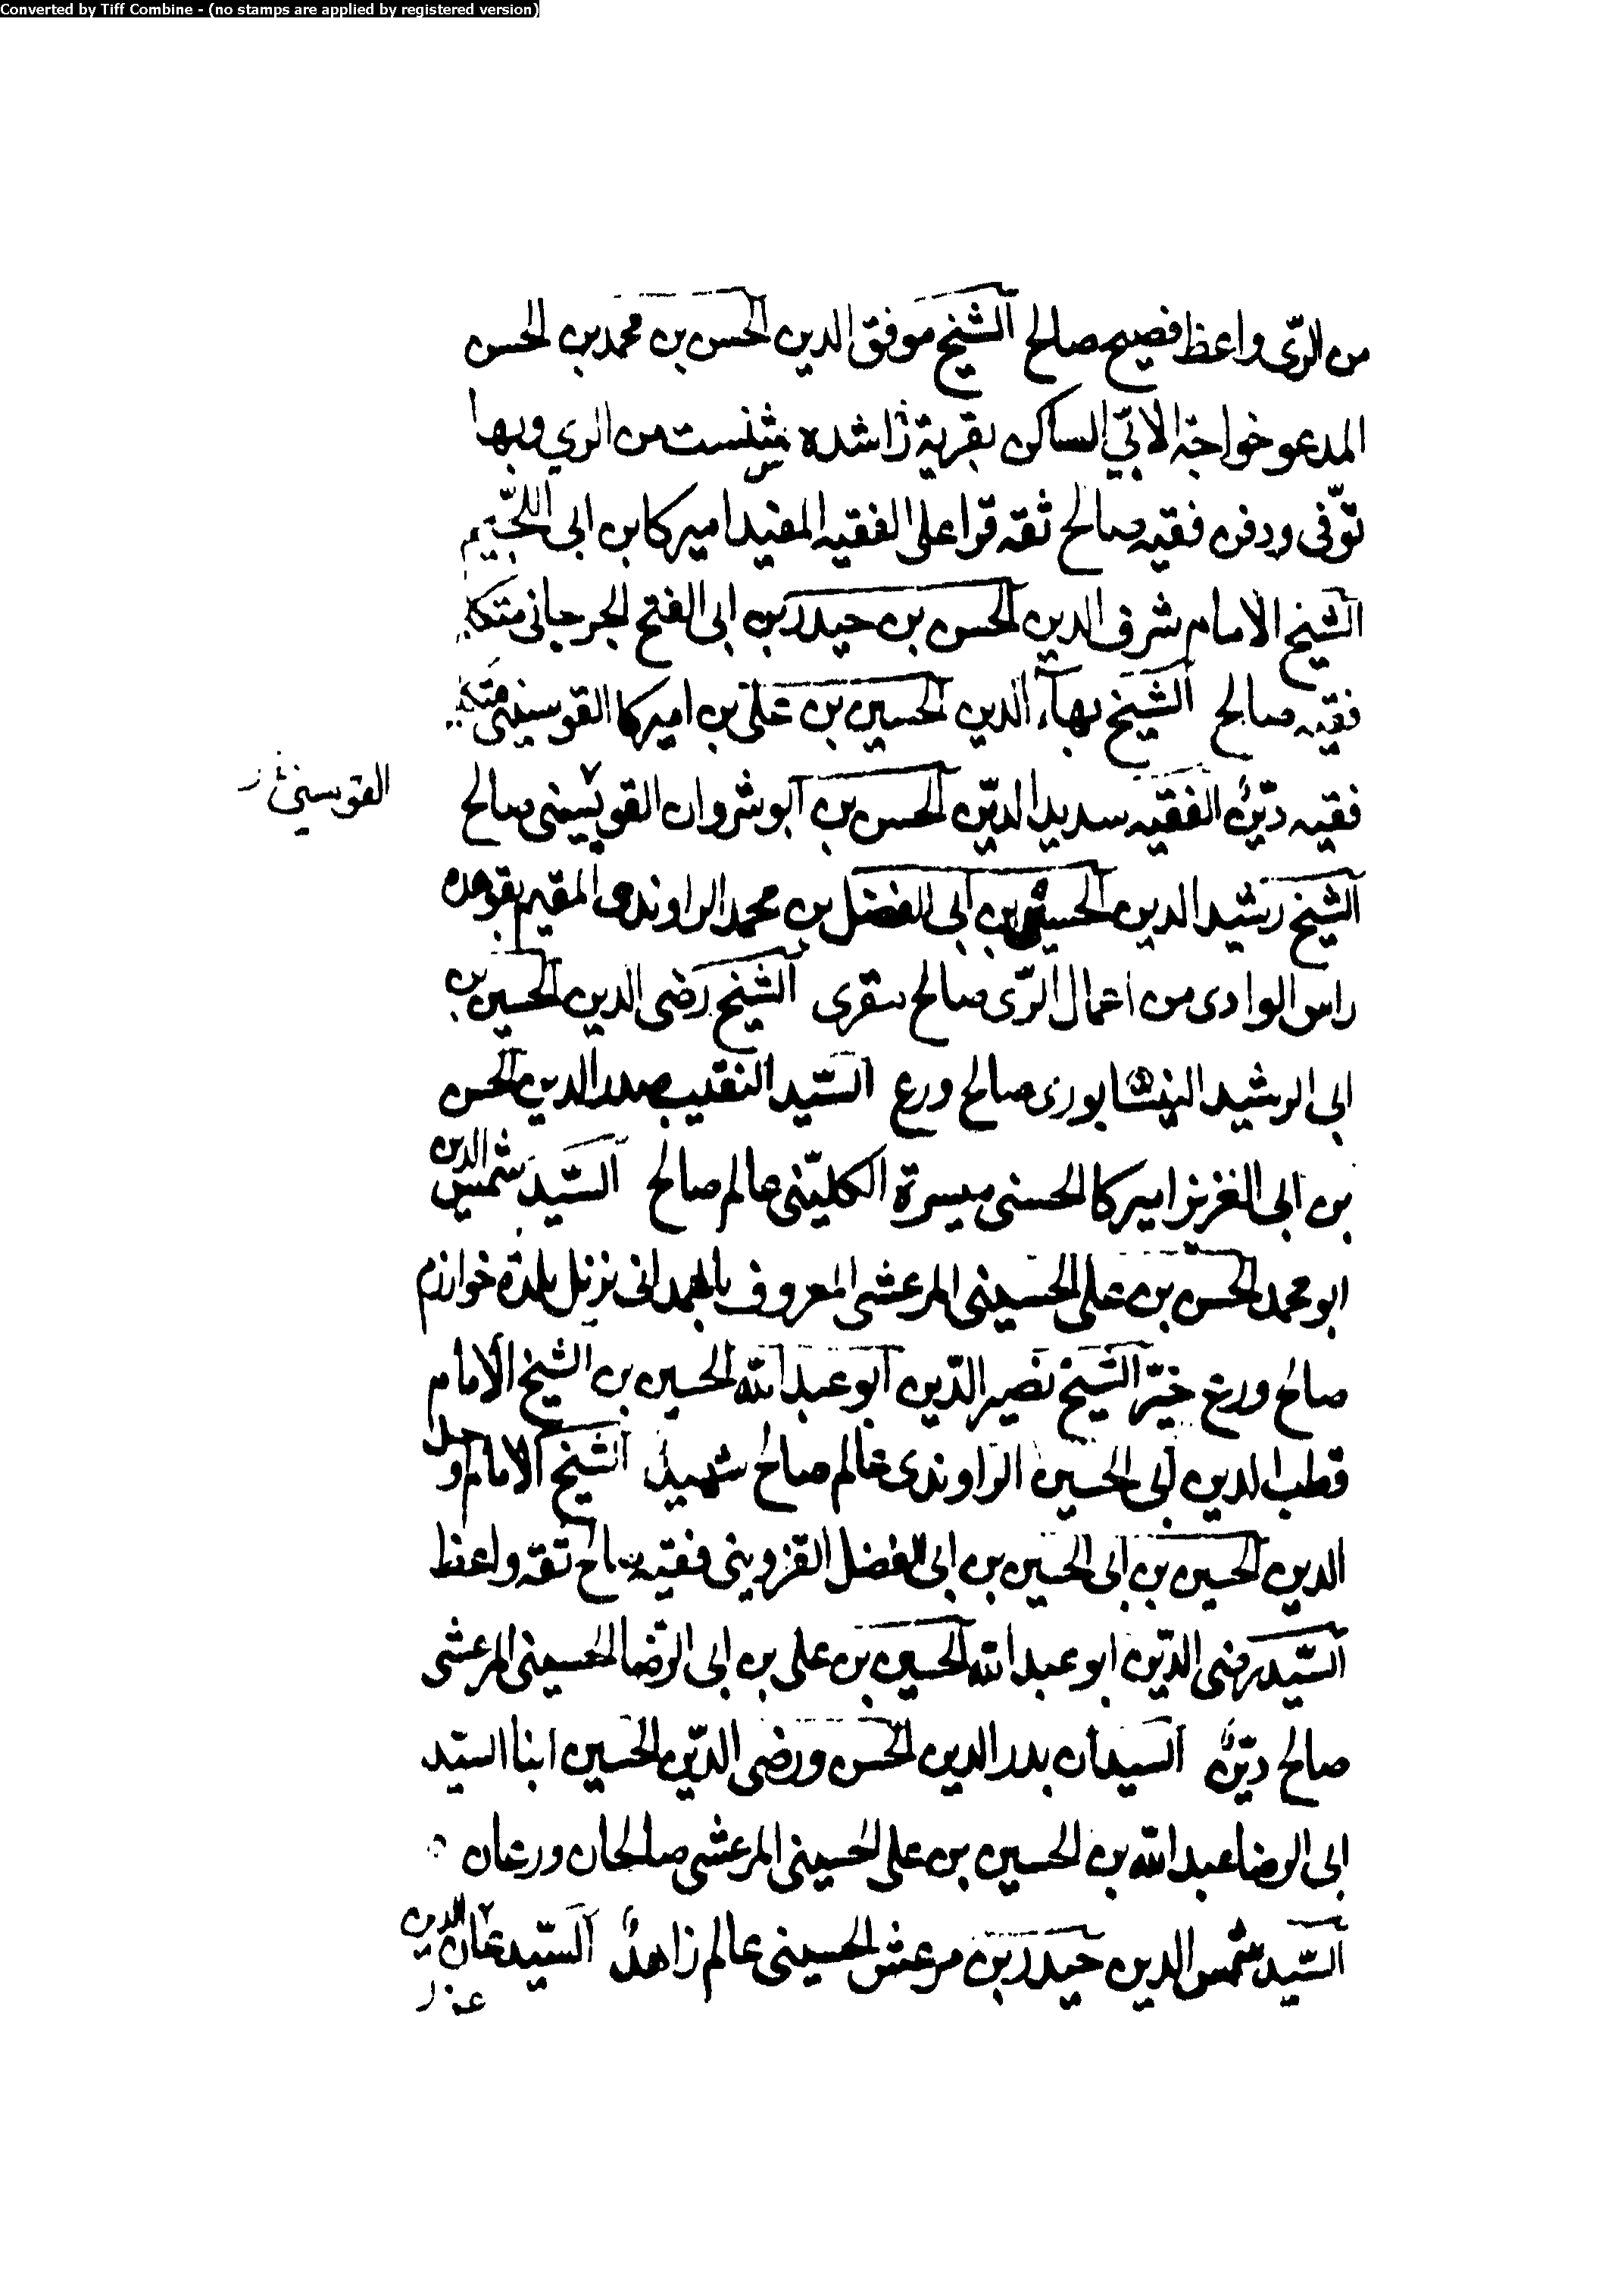 Converted by Tiff Combine - (no stamps are applied by registered version)
من الرّى واعظ فصيح صالح الشيخ موفق الدين الحسن بن محمد بن الحسن
المدعو خواجة الابّي الساكن بقرية راشده من الري وبها
توّفى ودفن فقيه صالح ثقه قرا على الفقيه المفيد اميركا بن ابى اللجيم
الشيخ الامام شرف الدين الحسن بن حيدر بن ابى الفتح الجرجانى متكلم
فقيه صالح الشيخ بهآء الدين الحسين بن على بن اميركا القوسينى متكلم
فقيه ديّن الفقيه سديد الديّن الحسن بن ابو شروان القوسينى صالح
القوسينى
الشيخ رشيد الدين الحسين بن ابى الفضل بن محمد الراوندى المقيم بقوهده
راس الوادى من اعمال الرّى صالح مقرى الشيخ رضى الدين الحسين بن
ابى الرشيد النيشابورى صالح ورع السّيد النقيب صدر الدين الحسن
بن ابى الغزيز اميركا الحسنى ميسرة الكليّنى عالم صالح السّيد شمس الدين
ابو محمد الحسن بن على الحسينى المرعشى المعروف بالهمدانى نزيل بلدة خوارزم
صالح ورع خيّر الشيخ نصير الدّين ابو عبد الله الحسين بن الشيخ الامام
قطب الدين ابى الحسين الراوندى عالم صالح شهيد الشيخ الامام جمال
الدين الحسين بن ابى الحسين بن ابى الفضل القزوينى فقيه صالح ثقه واعظ
السّيد رضى الدّين ابو عبد الله الحسين بن على بن ابى الرضا الحسينى المرعشى
صالح ديّن السيدان بدر الدين الحسن ورضى الدّين الحسين ابنا السيّد
ابى الرضا عبد الله بن الحسين بن على الحسينى المرعشى صالحان ورعان
السّيد شمس الدين حيدر بن مرعش الحسينى عالم زاهد السّيد الدين